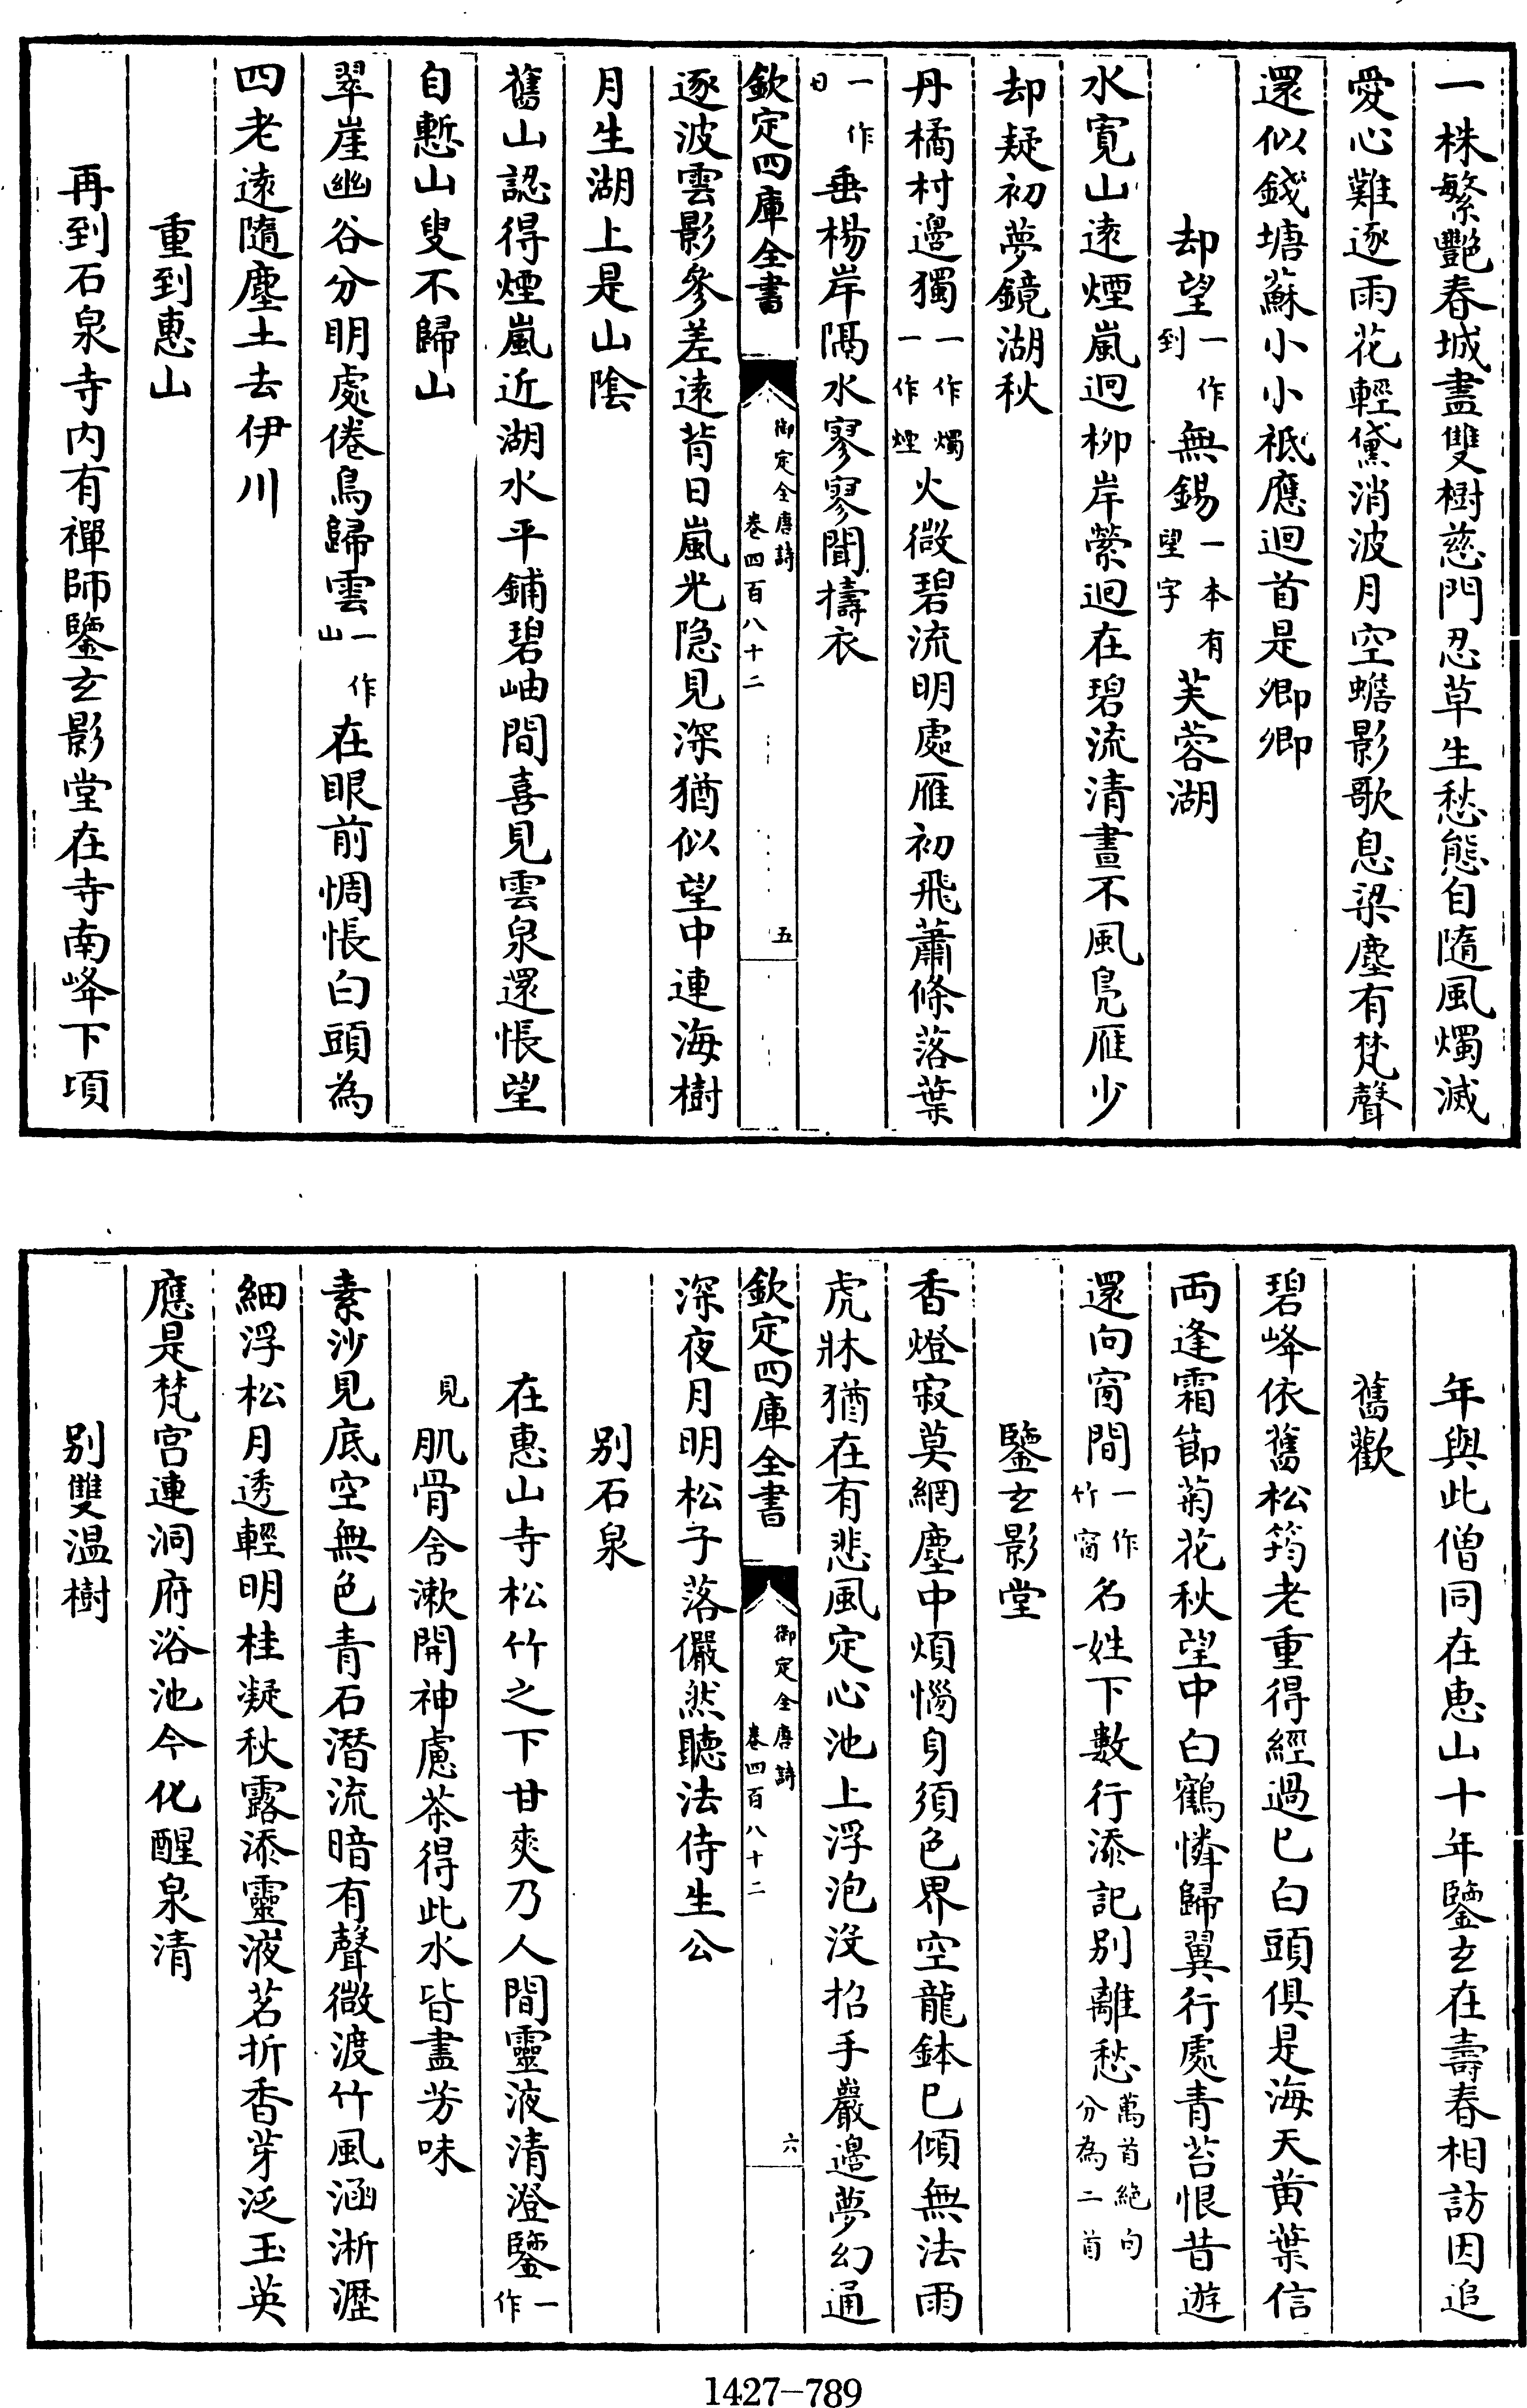 一株繁艷春城盡雙樹慈門忍草生愁態自隨風燭滅
愛心難逐雨花輕黛消波月空蟾影歌息梁塵有梵聲
還似錢塘蘇小小祗應迴首是卿卿
却望一作到無錫一本有望字芙蓉湖
水寬山遠煙嵐迴柳岸縈迴在碧流清晝不風鳧雁少
却疑初夢鏡湖秋
丹橘村邊獨一作燭一作煙火微碧流明處雁初飛蕭條落葉
一作日垂楊岸隔水寥寥聞擣衣
欽定四庫全書 御定全唐詩 卷四百八十二 五
逐波雲影參差遠背日嵐光隱見深猶似望中連海樹
月生湖上是山陰
舊山認得煙嵐近湖水平鋪碧岫間喜見雲泉還悵望
自慙山叟不歸山
翠崖幽谷分明處倦鳥歸雲一作山在眼前惆悵白頭為
四老遠隨塵土去伊川
重到惠山
再到石泉寺内有禪師鑒玄影堂在寺南峰下項
年與此僧同在惠山十年鑒玄在壽春相訪因追
舊歡
碧峰依舊松筠老重得經過已白頭俱是海天黄葉信
兩逢霜節菊花秋望中白鶴憐歸翼行處青苔恨昔遊
還向窗間一作竹窗名姓下數行添記别離愁萬首絶句分為二首
鑒玄影堂
香燈寂莫網塵中煩惱身須色界空龍鉢已傾無法雨
虎牀猶在有悲風定心池上浮泡沒招手巖邊夢幻通
欽定四庫全書 御定全唐詩 卷四百八十二 六
深夜月明松子落儼然聽法侍生公
别石泉
在惠山寺松竹之下甘爽乃人間靈液清澄鑒一作
見肌骨含漱開神慮茶得此水皆盡芳味
素沙見底空無色青石潛流暗有聲微渡竹風涵淅瀝
細浮松月透輕明桂凝秋露添靈液茗折香芽泛玉英
應是梵宫連洞府浴池今化醒泉清
别雙温樹
1427-789